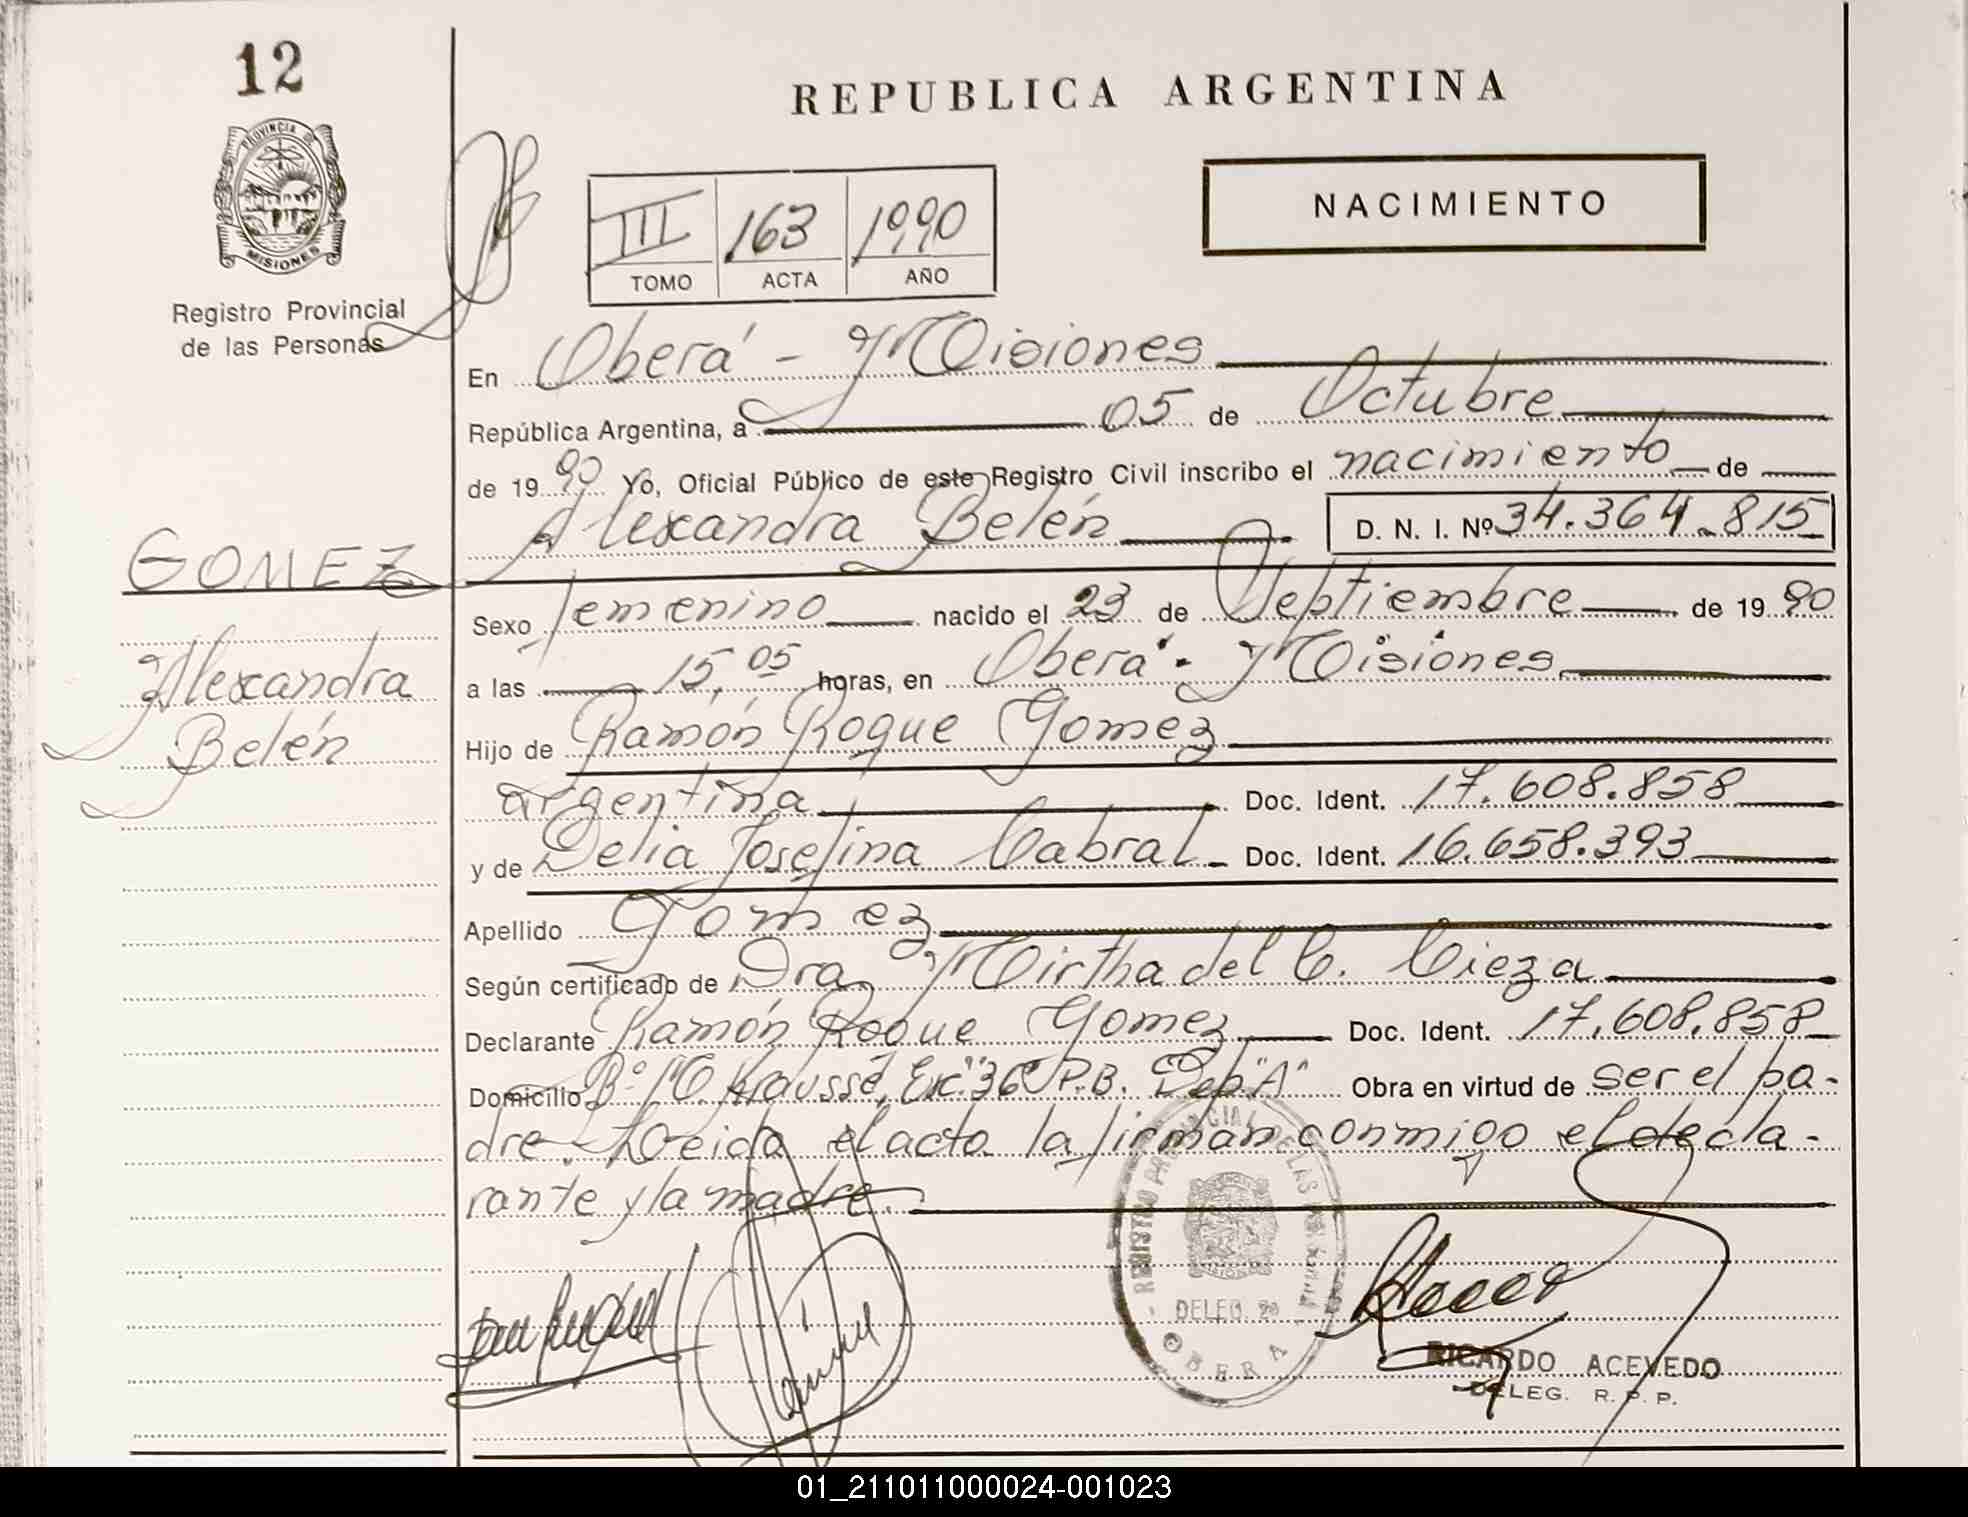 12
REPUBLICA ARGENTINA
PROVINCIA DE
MISIONES
Registro Provincial
de las Personas
III 163 1990
TOMO ACTA AÑO
NACIMIENTO
En Oberá - Misiones
República Argentina, a 05 de Octubre
de 1990 Yo, Oficial Público de este Registro Civil inscribo el nacimiento de
Alexandra Belén D. N. I. Nº 34.364.815
GOMEZ
Alexandra
Belén
Sexo femenino nacido el 23 de Septiembre de 1990
a las 15,05 horas, en Oberá - Misiones
Hijo de Ramón Roque Gomez
argentina Doc. Ident. 17.608.858
y de Delia Josefina Cabral - Doc. Ident. 16.658.393
Apellido Gomez
Según certificado de Dra. Mirtha del C. Cieza
Declarante Ramón Roque Gomez Doc. Ident. 17.608.858
Domicilio Bº Krausse, Esc. 36 P.B. Dep. "A" Obra en virtud de ser el pa-
dre. Leida el acta la firman conmigo el decla-
rante y la madre.
REGISTRO PROVINCIAL DE LAS
DELEG.
OBERA
RICARDO ACEVEDO
DELEG. R. P. P.
01_211011000024-001023